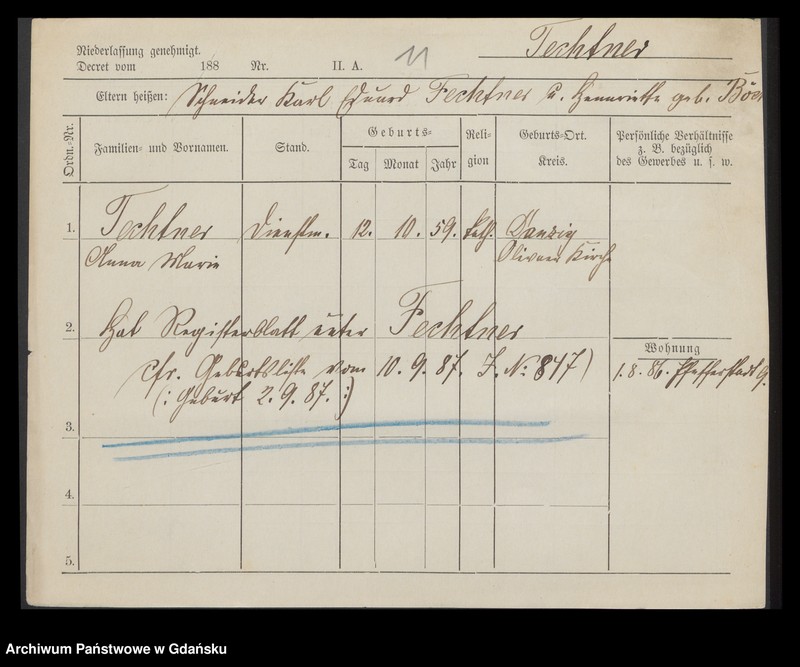 Techtner
Niederlassung genehmigt.
Decret vom 188 Nr. II. A. 11
Eltern heißen: Schneider Karl Eduard Fechtner u. Henriette geb.
Ordn.-Nr. Familien- und Vornamen. Stand. Geburts- Tag Monat Jahr Religion Geburts-Ort. Kreis. Persönliche Verhältnisse z. B. bezüglich des Gewerbes u. s. w.
1. Techtner Dienstm. 12. 10. 59. kath. Danzig
Anna Marie Olivaer Kirche
2. Hat Registerblatt unter Fechtner
Wohnung
cfr. Geburtsliste vom 10. 9. 87. J. No: 847) 1. 8. 86. Pfefferstadt 9.
(: Geburt 2. 9. 87. :)
3.
4.
5.
Archiwum Państwowe w Gdańsku